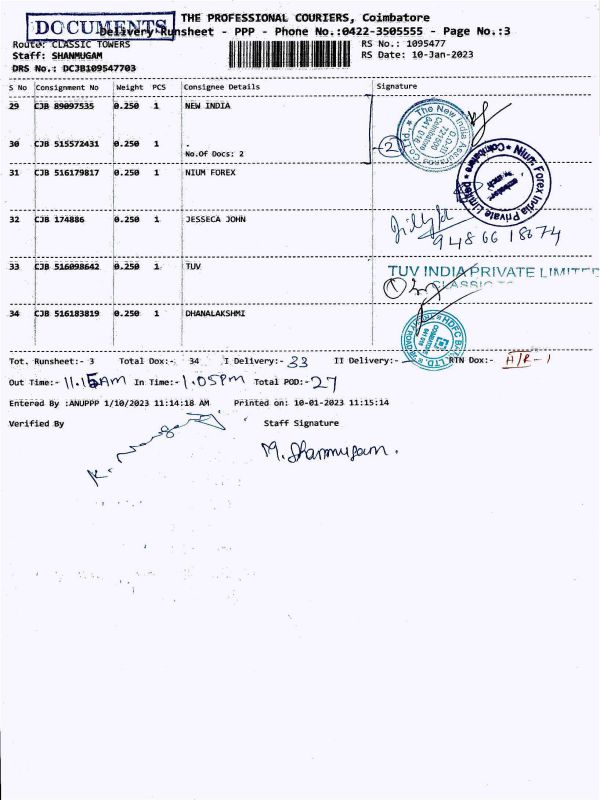 DOCUMENTS
THE PROFESSIONAL COURIERS, Coimbatore
Delivery Runsheet - PPP - Phone No.:0422-3505555 - Page No.:3
Route: CLASSIC TOWERS RS No.: 1095477
Staff: SHANMUGAM RS Date: 10-Jan-2023
DRS No.: DCJB109547703
S No Consignment No Weight PCS Consignee Details Signature
29 CJB 89097535 0.250 1 NEW INDIA
The New India Assurance Co. Ltd.
721500
Coimbatore
641 018
30 CJB 515572431 0.250 1 .
No.Of Docs: 2
2
31 CJB 516179817 0.250 1 NIUM FOREX
Nium Forex India Private Limited * Coimbatore *
32 CJB 174886 0.250 1 JESSECA JOHN
9486618674
33 CJB 516098642 0.250 1 TUV
TUV INDIA PRIVATE LIMITED
CLASSIC
1
34 CJB 516183819 0.250 1 DHANALAKSHMI
HDFC BANK LTD.
Tot. Runsheet:- 3 Total Dox:- 34 I Delivery:- 33 II Delivery:- RTN Dox:- A/R-1
Out Time:- 11.15AM In Time:- 1.05PM Total POD:- 27
Entered By :ANUPPP 1/10/2023 11:14:18 AM Printed on: 10-01-2023 11:15:14
Verified By Staff Signature
M. Shanmugam.